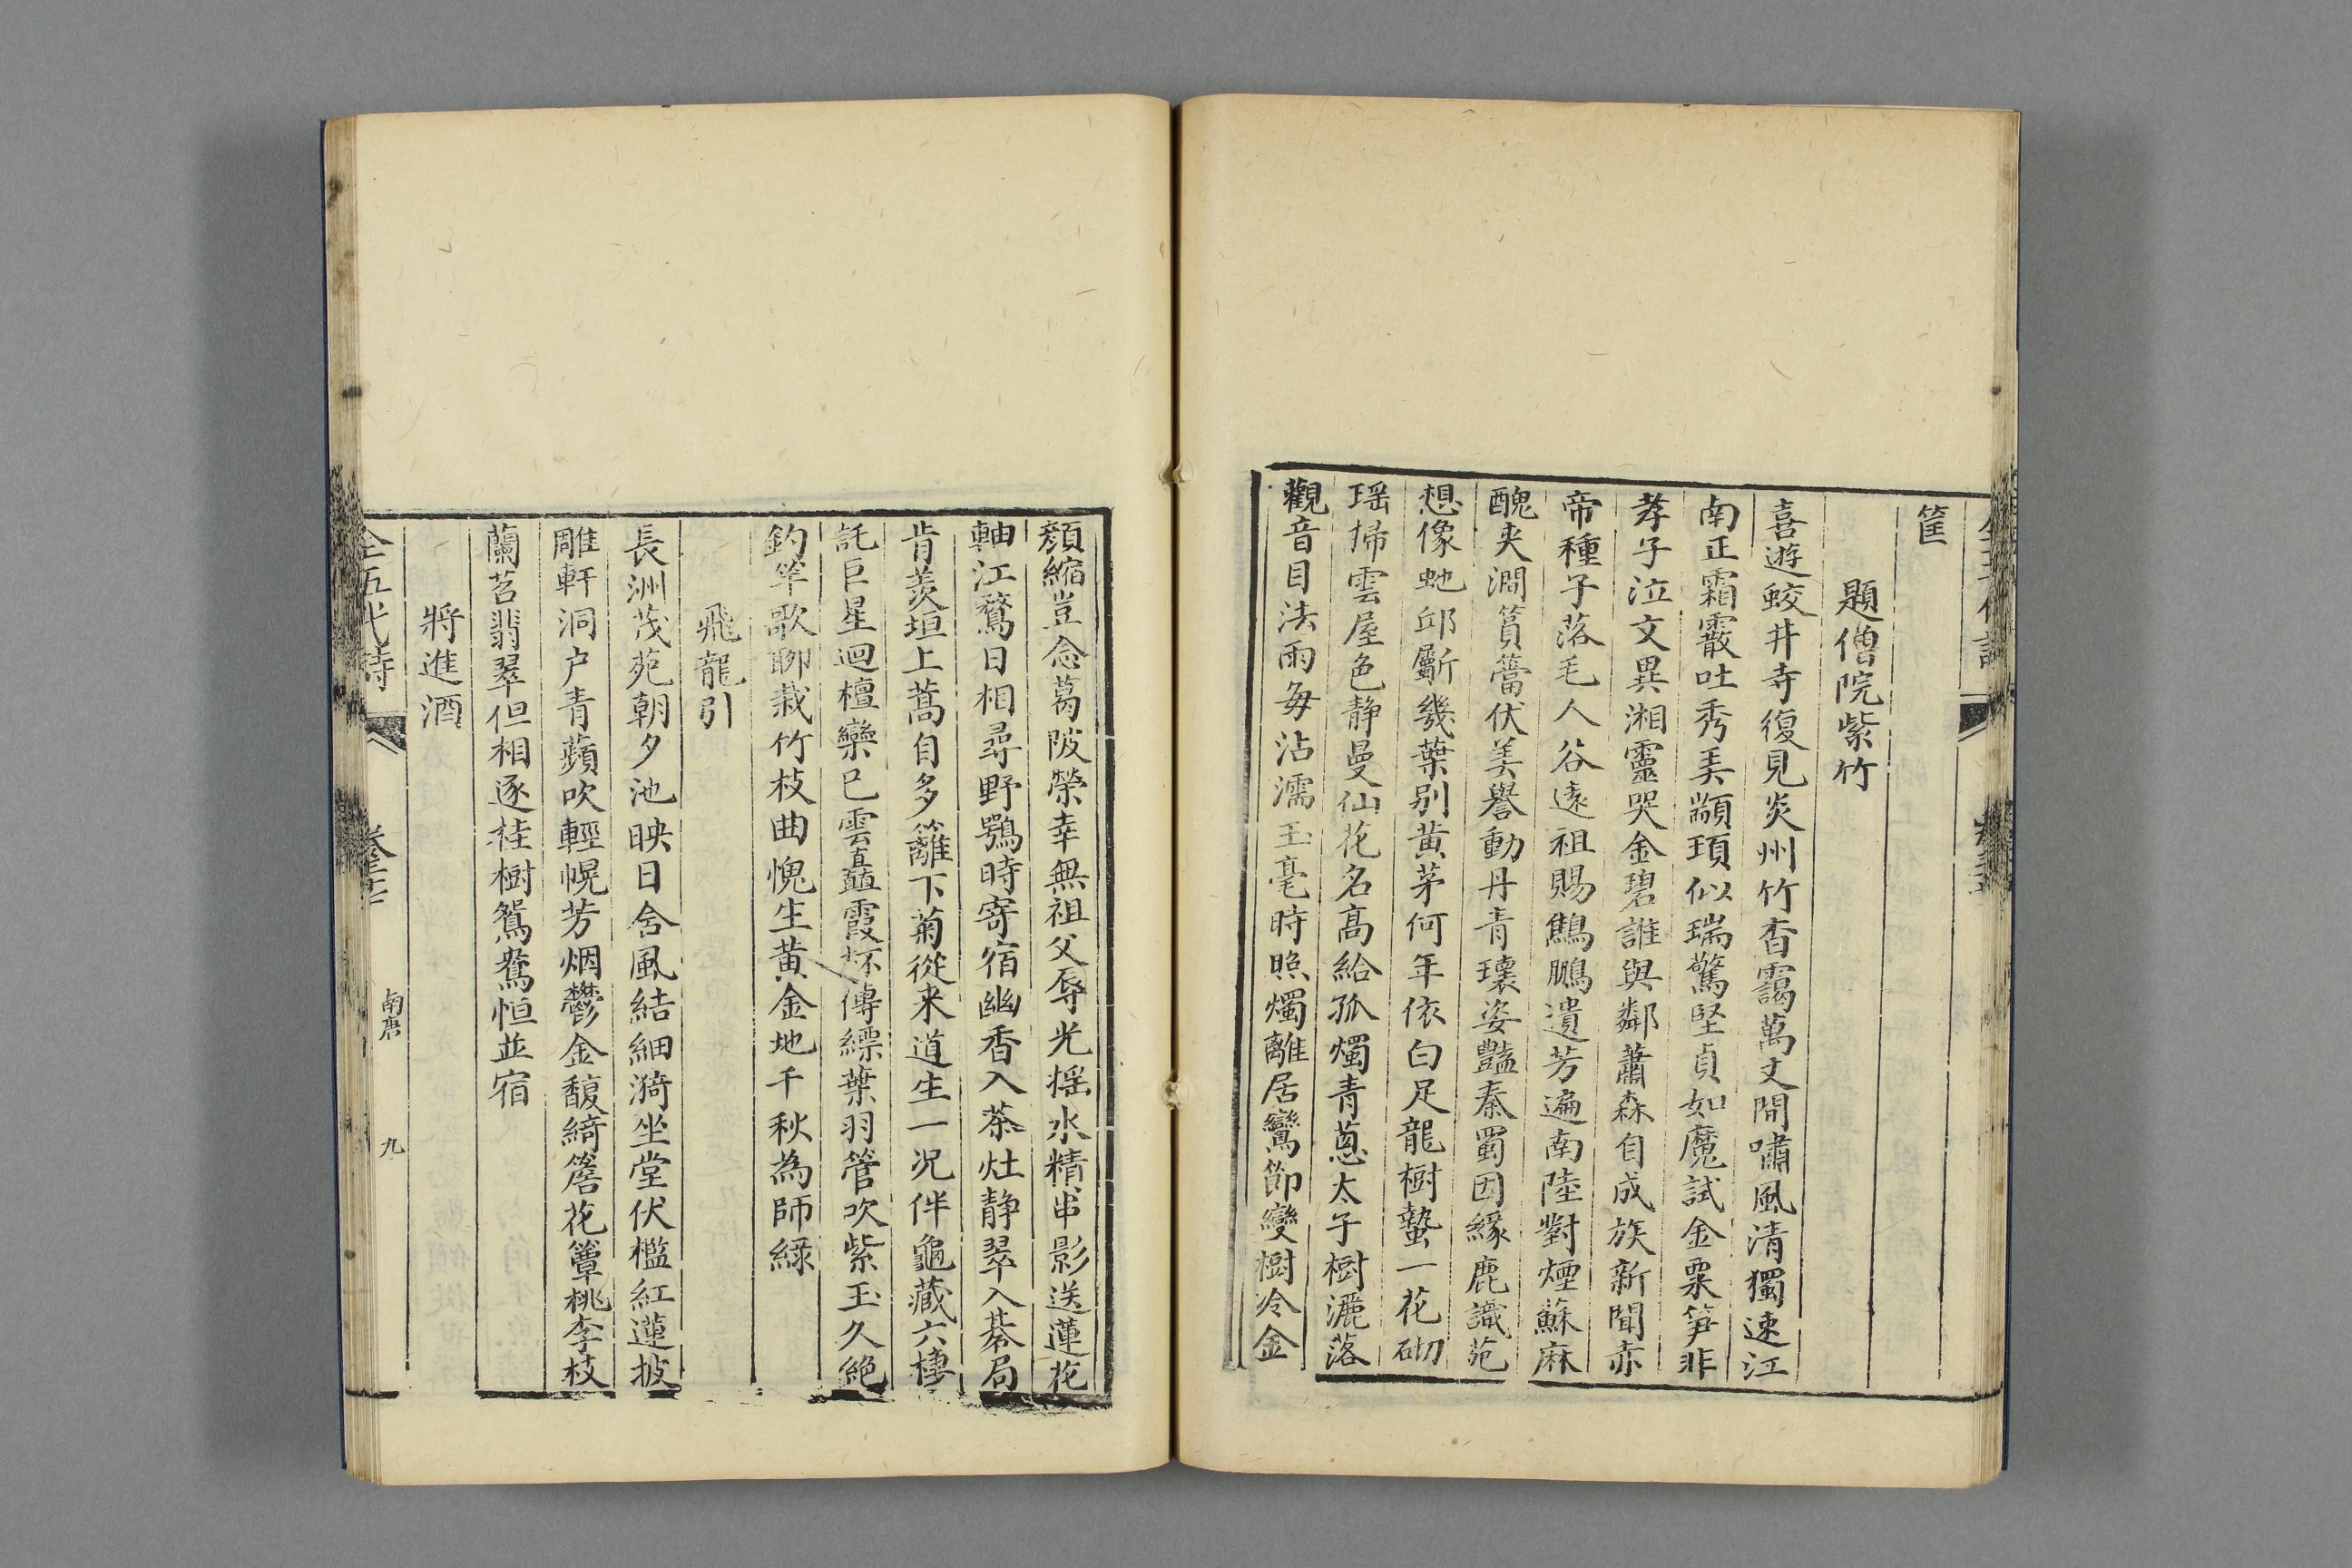 筐
題僧院紫竹
喜遊蛟井寺復見炎州竹杳靄萬丈間嘯風清獨速江
南正霜霰吐秀美顓頊似瑞驚堅貞如魔試金粟筍非
孝子泣文異湘靈哭金碧誰與鄰蕭森自成族新聞赤
帝種子落毛人谷遠祖賜鷦鵬遺芳遍南陸對煙蘇麻
醜夾澗篔簹伏美譽動丹青瓌姿豔秦蜀因緣鹿識苑
想像虵邱斸幾葉別黃茅何年依白足龍樹蟄一花砌
瑶掃雲屋色静曼仙花名高給孤燭青蔥太子樹灑落
觀音目法雨每沾濡玉毫時照燭離居鸞節變樹冷金
顏縮豈念葛陂榮幸無祖父辱光摇水精串影送蓮花
軸江鶩日相尋野鶚時寄宿幽香入茶灶静翠入碁局
肯羨垣上蒿自多籬下菊從来道生一况伴龜藏六棲
託巨星迴檀欒巳雲矗霞杯傳縹葉羽管吹紫玉久絶
釣竿歌聊裁竹枝曲愧生黄金地千秋為師緑
飛龍引
長洲茂苑朝夕池映日含風結細漪坐堂伏檻紅蓮披
雕軒洞户青蘋吹輕幌芳烟鬱金馥綺簷花簟桃李枝
蘭苕翡翠但相逐桂樹鴛鴦恒並宿
將進酒
全五代詩
南唐
九